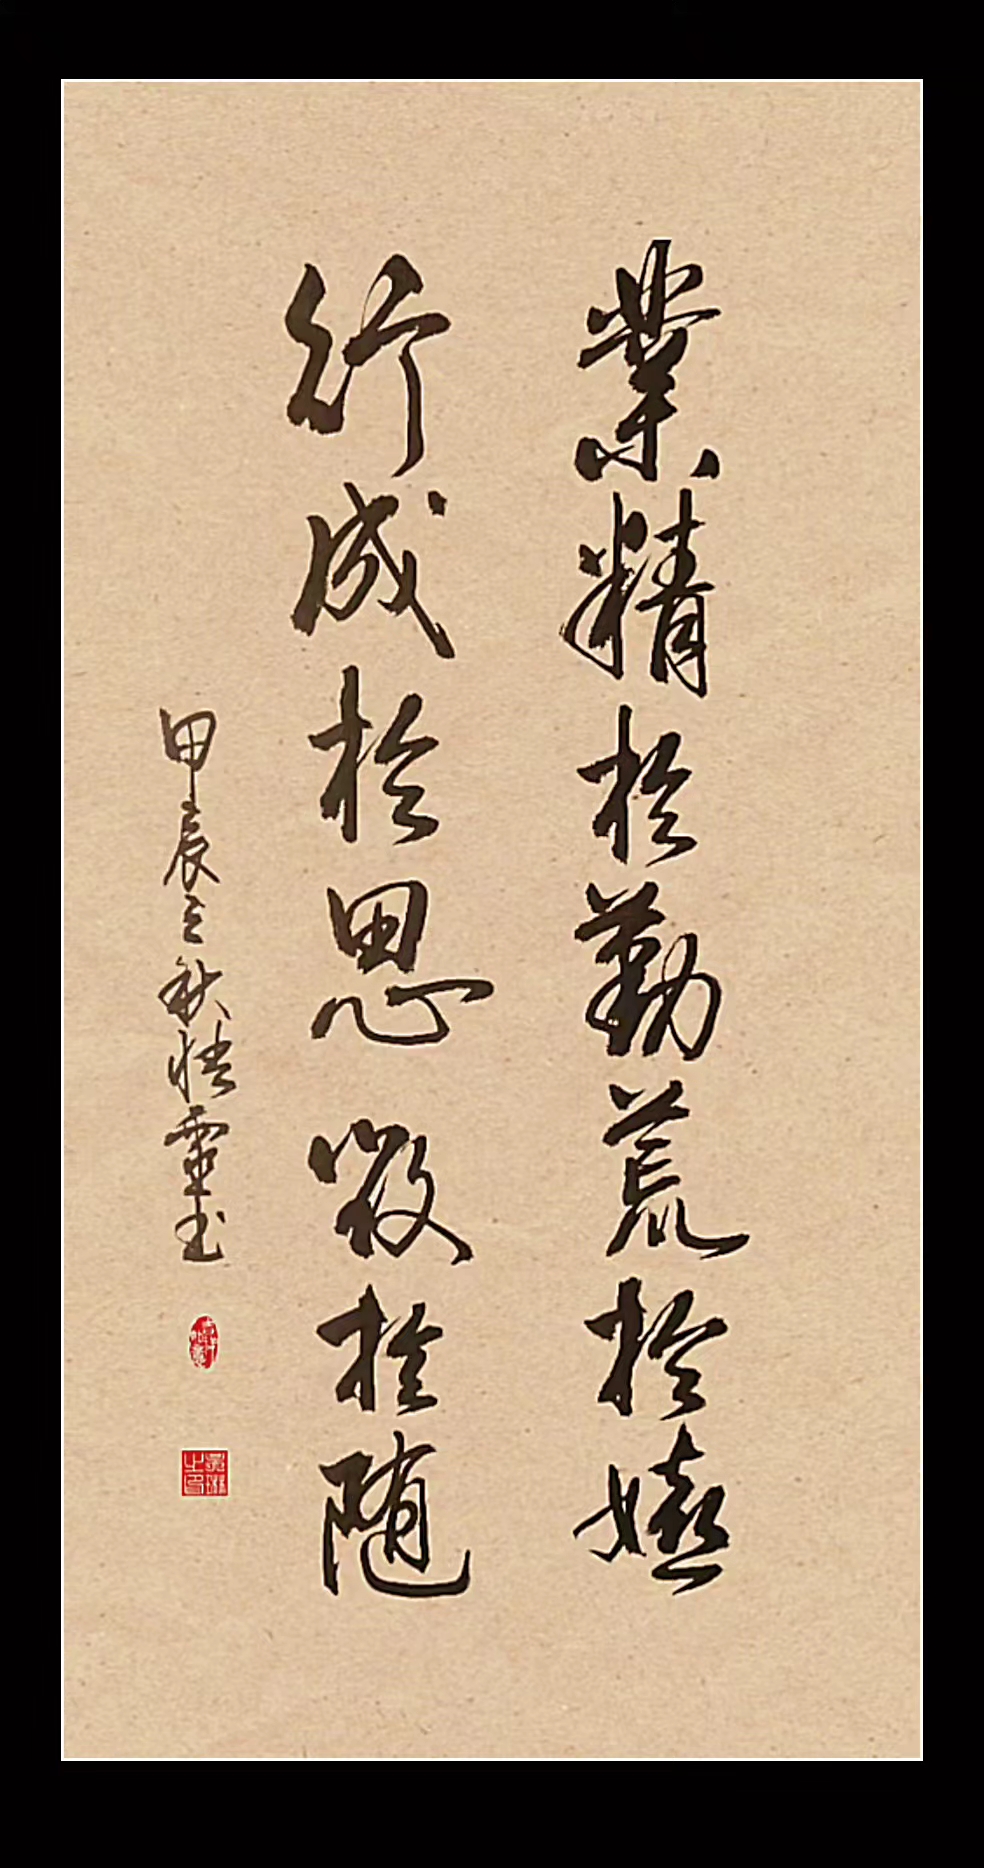 業精於勤荒於嬉
行成於思毁於随
甲辰之秋靈玉